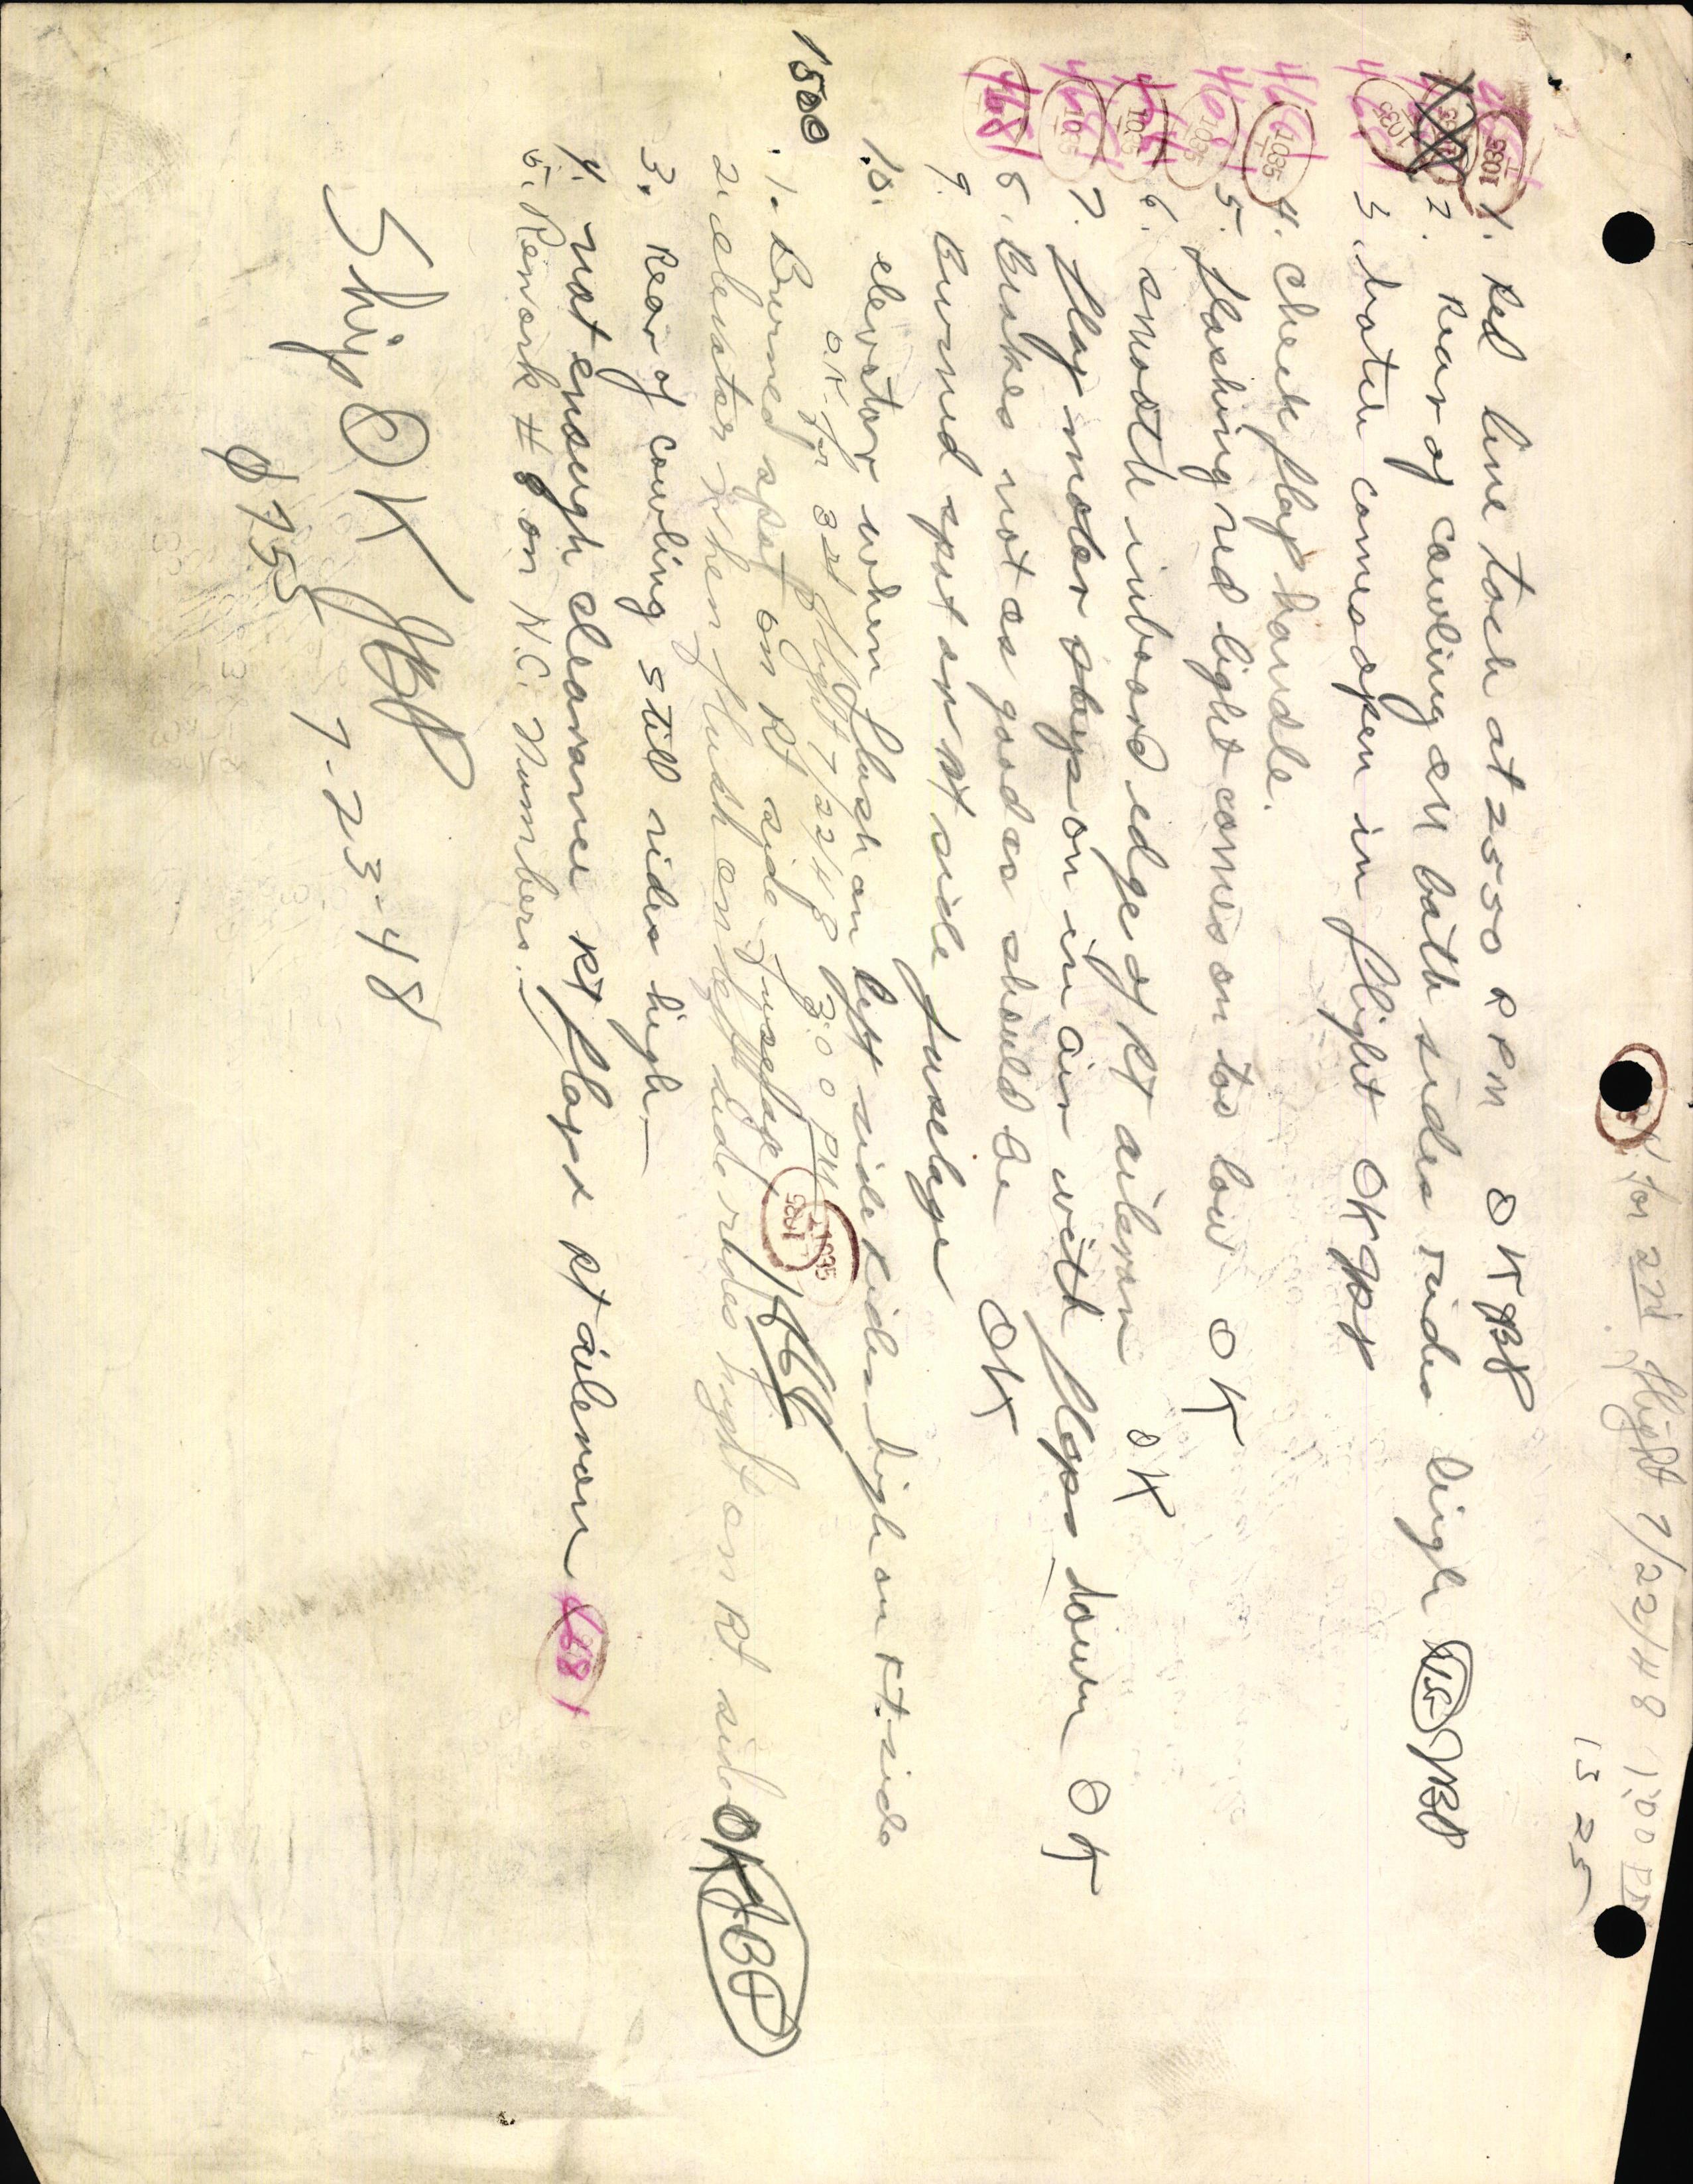 for 2nd flight 7/22/48 1:00 PM
1325
1. Red line tach at 2550 RPM OK JBP
2. Rear of cowling on both sides rides high JBP
3 hatch comes open in flight OK JBP
4. Check flap handle.
5. flashing red light comes on too low OK
6. smooth inboard edge of RT aileron OK
7. flap motor stays on in air with flaps down OK
8. Brakes not as good as should be OK
9. Burned spot on RT side fuselage
10. elevator when flush on left side rides high on rt. side
O.K. for 3rd flight 7/22/48 3:00 PM
1500
1. Burned spot on RT side fuselage
2. elevator when flush on left side rides hight on RT side OK JBP
3. Rear of cowling still rides high
4. not enough clearance RT flaps RT aileron
5. Rework # 8 on N.C. Numbers.
Ship OK JBP
0755 7-23-48
1035
1035
1035
1035
1035
1035
1035
1035
468
468